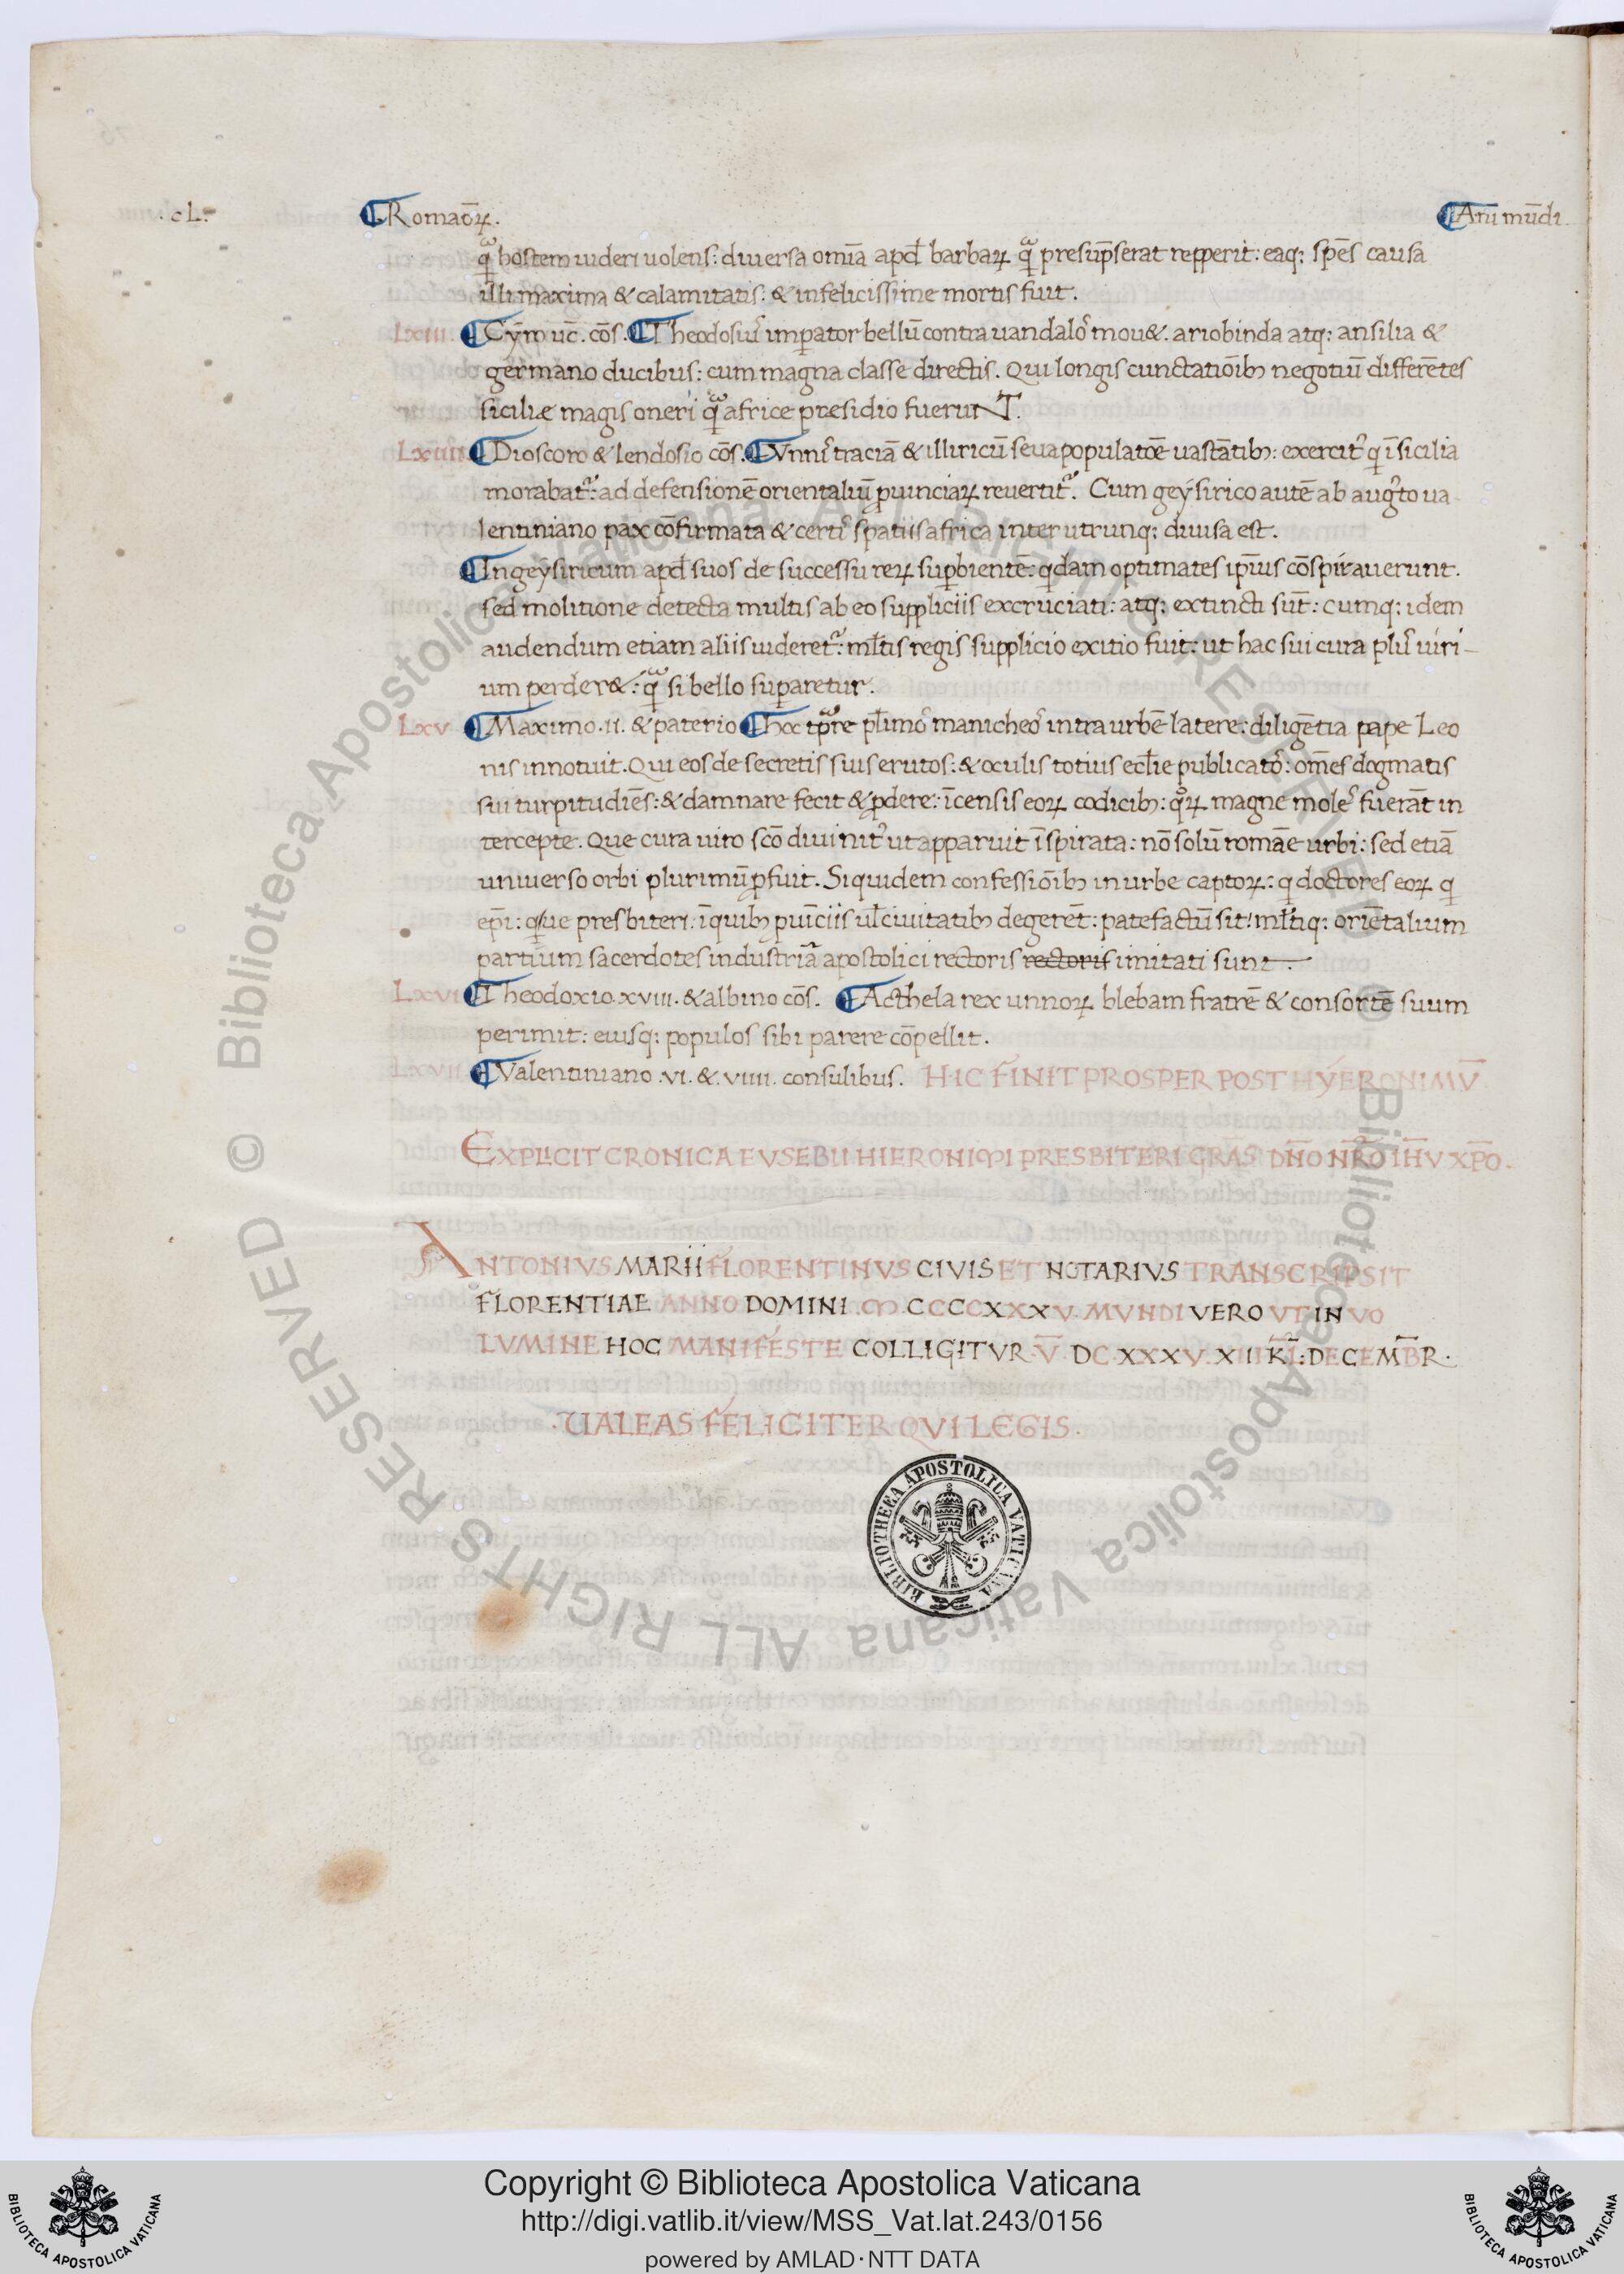 .cL.
Romaōꝝ.
Añi mūdi.
qᷓ hostem uideri uolens: diuersa omīa apd̄ barbaꝝ qᷓ presūpserat repperit: eaq; spēs causa
illi maxima & calamitatis: & infelicissime mortis fuit.
Lxiii. Cyro uc̄. cōs. Theodosiuſ imꝑator bellū contra uandaloſ mou&. ariobinda atq; ansilia &
germano ducibus: cum magna classe directis. Qui longis cunctatiōib; negotiū differētes
siciliæ magis oneri qᷓ africe presidio fueruNT.
Lxiiii Dioscoro & lendosio cōs. Vnniſ traciā & illiricū seua populatōe uastātib;: exercitꝰ q ī sicilia
morabat᷑: ad defensionē orientaliū ꝓuinciaꝝ reuertit᷑. Cum geysirico autē ab augꝰto ua
lentiniano pax cōfirmata & certiſ spatiis africa inter utrunq; diuisa est.
In geysiricum apd̄ suos de successu reꝝ suꝑbientē: qdam optimates ipīus cōspirauerunt.
sed molitione detecta multis ab eo suppliciis excruciati: atq; extincti sūt: cumq; idem
audendum etiam aliis uideret᷑: ml̄tis regis supplicio exitio fuit: ut hac sui cura pluſ uiri-
um perder&: qᷓ si bello suꝑaretur.
Lxv Maximo .ii. & paterio Hoc tꝑre pl̄imoſ manicheoſ intra urbē latere: diligētia pape Leo
nis innotuit. Qui eos de secretis suis erutos: & oculis totius eccl̄ie publicatoſ: om̄es dogmatis
sui turpitudiēs: & damnare fecit & ꝓdere: īcensis eoꝝ codicib;: qͦꝝ magne moleſ fuerāt in
tercepte. Que cura uiro sc̄o diuinitꝰ ut apparuit īspirata: nō solū romāe urbi: sed etiā
uniuerso orbi plurimū ꝓfuit. Siquidem confessiōib; in urbe captoꝝ: q doctores eoꝝ q
ep̄i: qͥue presbiteri: ī quib; ꝓuīciis ul̄ ciuitatib; degerēt: patefactū sit: ml̄tiq; oriētalium
partium sacerdotes industriā apostolici rectoris rectoris imitati sunt.
Lxvi Theodoxio. xviii. & albino cōs. Acthela rex unnoꝝ blebam fratrē & consortē suum
perimit: eiusq; populos sibi parere cōpellit.
Lxvii Valentiniano .vi. & .viiii. consulibus. HIC FINIT PROSPER POST HYERONIMV̄
EXPLICIT CRONICA EVSEBII HIERONIMI PRESBITERI GR̄AS DN̄O NR̄O IH̄V XP̄O.
ANTONIVS MARII FLORENTINVS CIVIS ET NOTARIVS TRANSCRIPSIT
FLORENTIAE ANNO DOMINI .M.CCCCXXXV. MVNDI VERO VT IN VO
LVMINE HOC MANIFESTE COLLIGITVR V̄ DC.XXXV. XIIII KL̄: DECEMB̄R.
.VALEAS FELICITER QVI LEGIS.
BIBLIOTHECA APOSTOLICA VATICANA
© Biblioteca Apostolica Vaticana ALL RIGHTS RESERVED
© Biblioteca Apostolica Vaticana ALL RIGHTS RESERVED
Copyright © Biblioteca Apostolica Vaticana
http://digi.vatlib.it/view/MSS_Vat.lat.243/0156
powered by AMLAD·NTT DATA
BIBLIOTECA APOSTOLICA VATICANA
BIBLIOTECA APOSTOLICA VATICANA